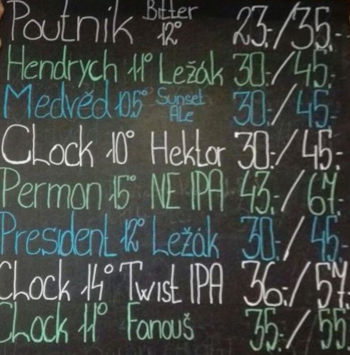 Poutník Bitter 12° 23,-/35,-
Hendrych 11° Ležák 30,-/45,-
Medvěd 10,5° Sunset Ale 30,-/45,-
Clock 10° Hektor 30,-/45,-
Permon 15° NE IPA 43,-/67,-
President 12° Ležák 30,-/45,-
Clock 14° Twist IPA 36,-/57,-
Clock 11° Fanouš 35,-/55,-